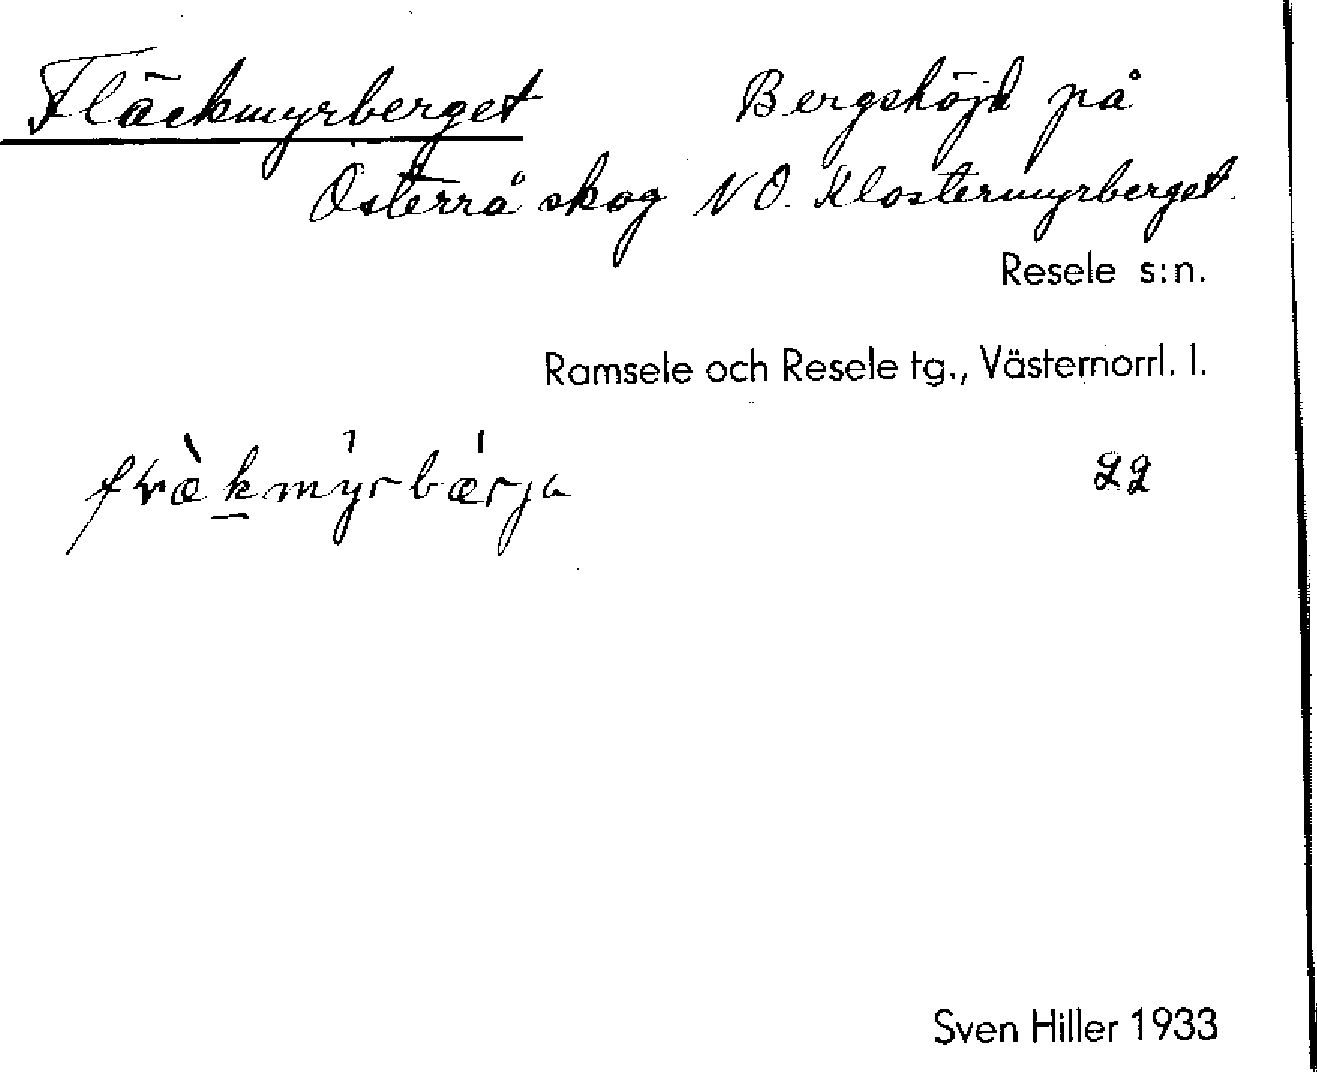 Fläckmyrberget Bergshöjd på
Österrå skog NO. Klostermyrberget.
Resele s:n.
Ramsele och Resele tg., Västernorrl. l.
Sven Hiller 1933